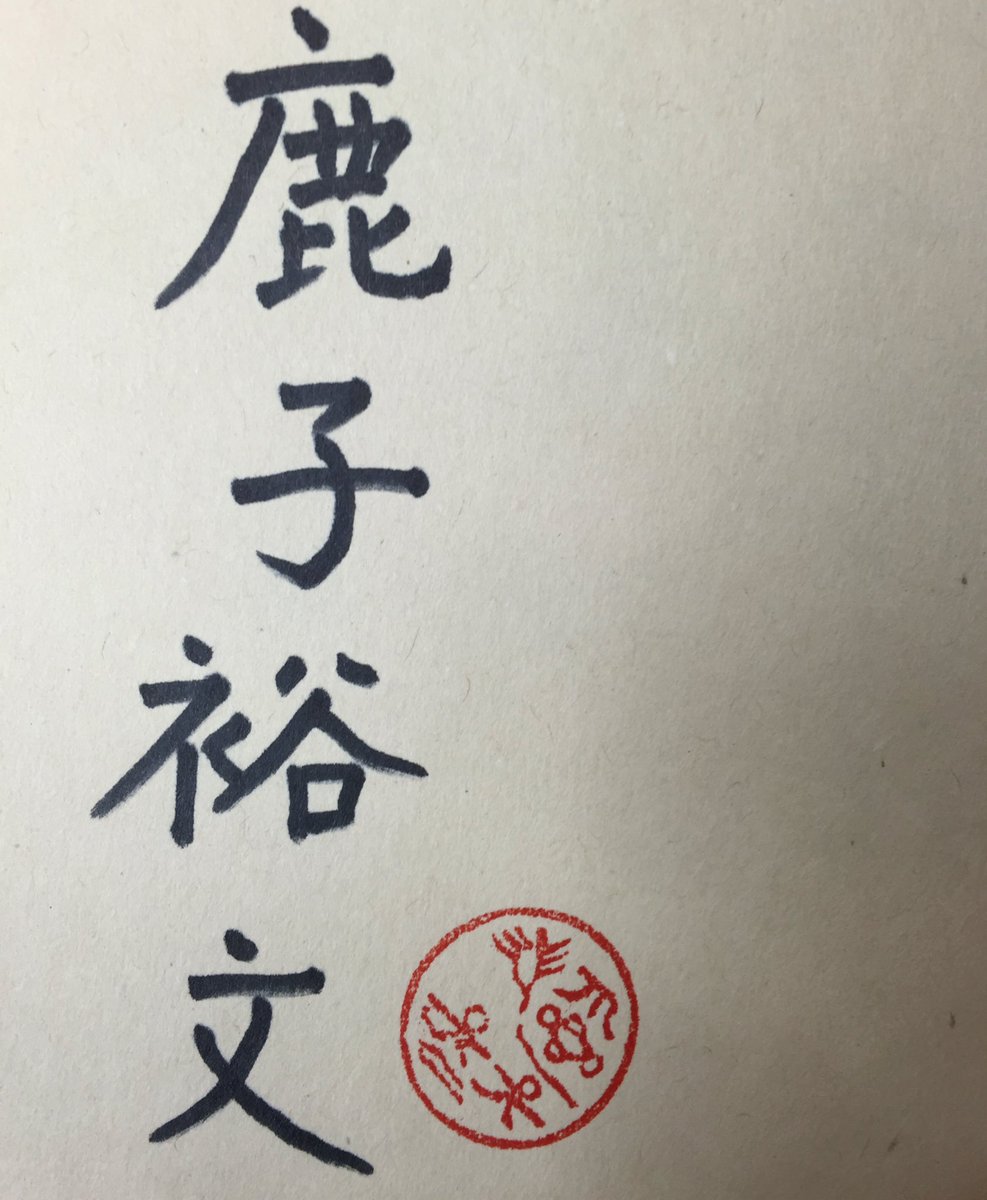 鹿子裕文